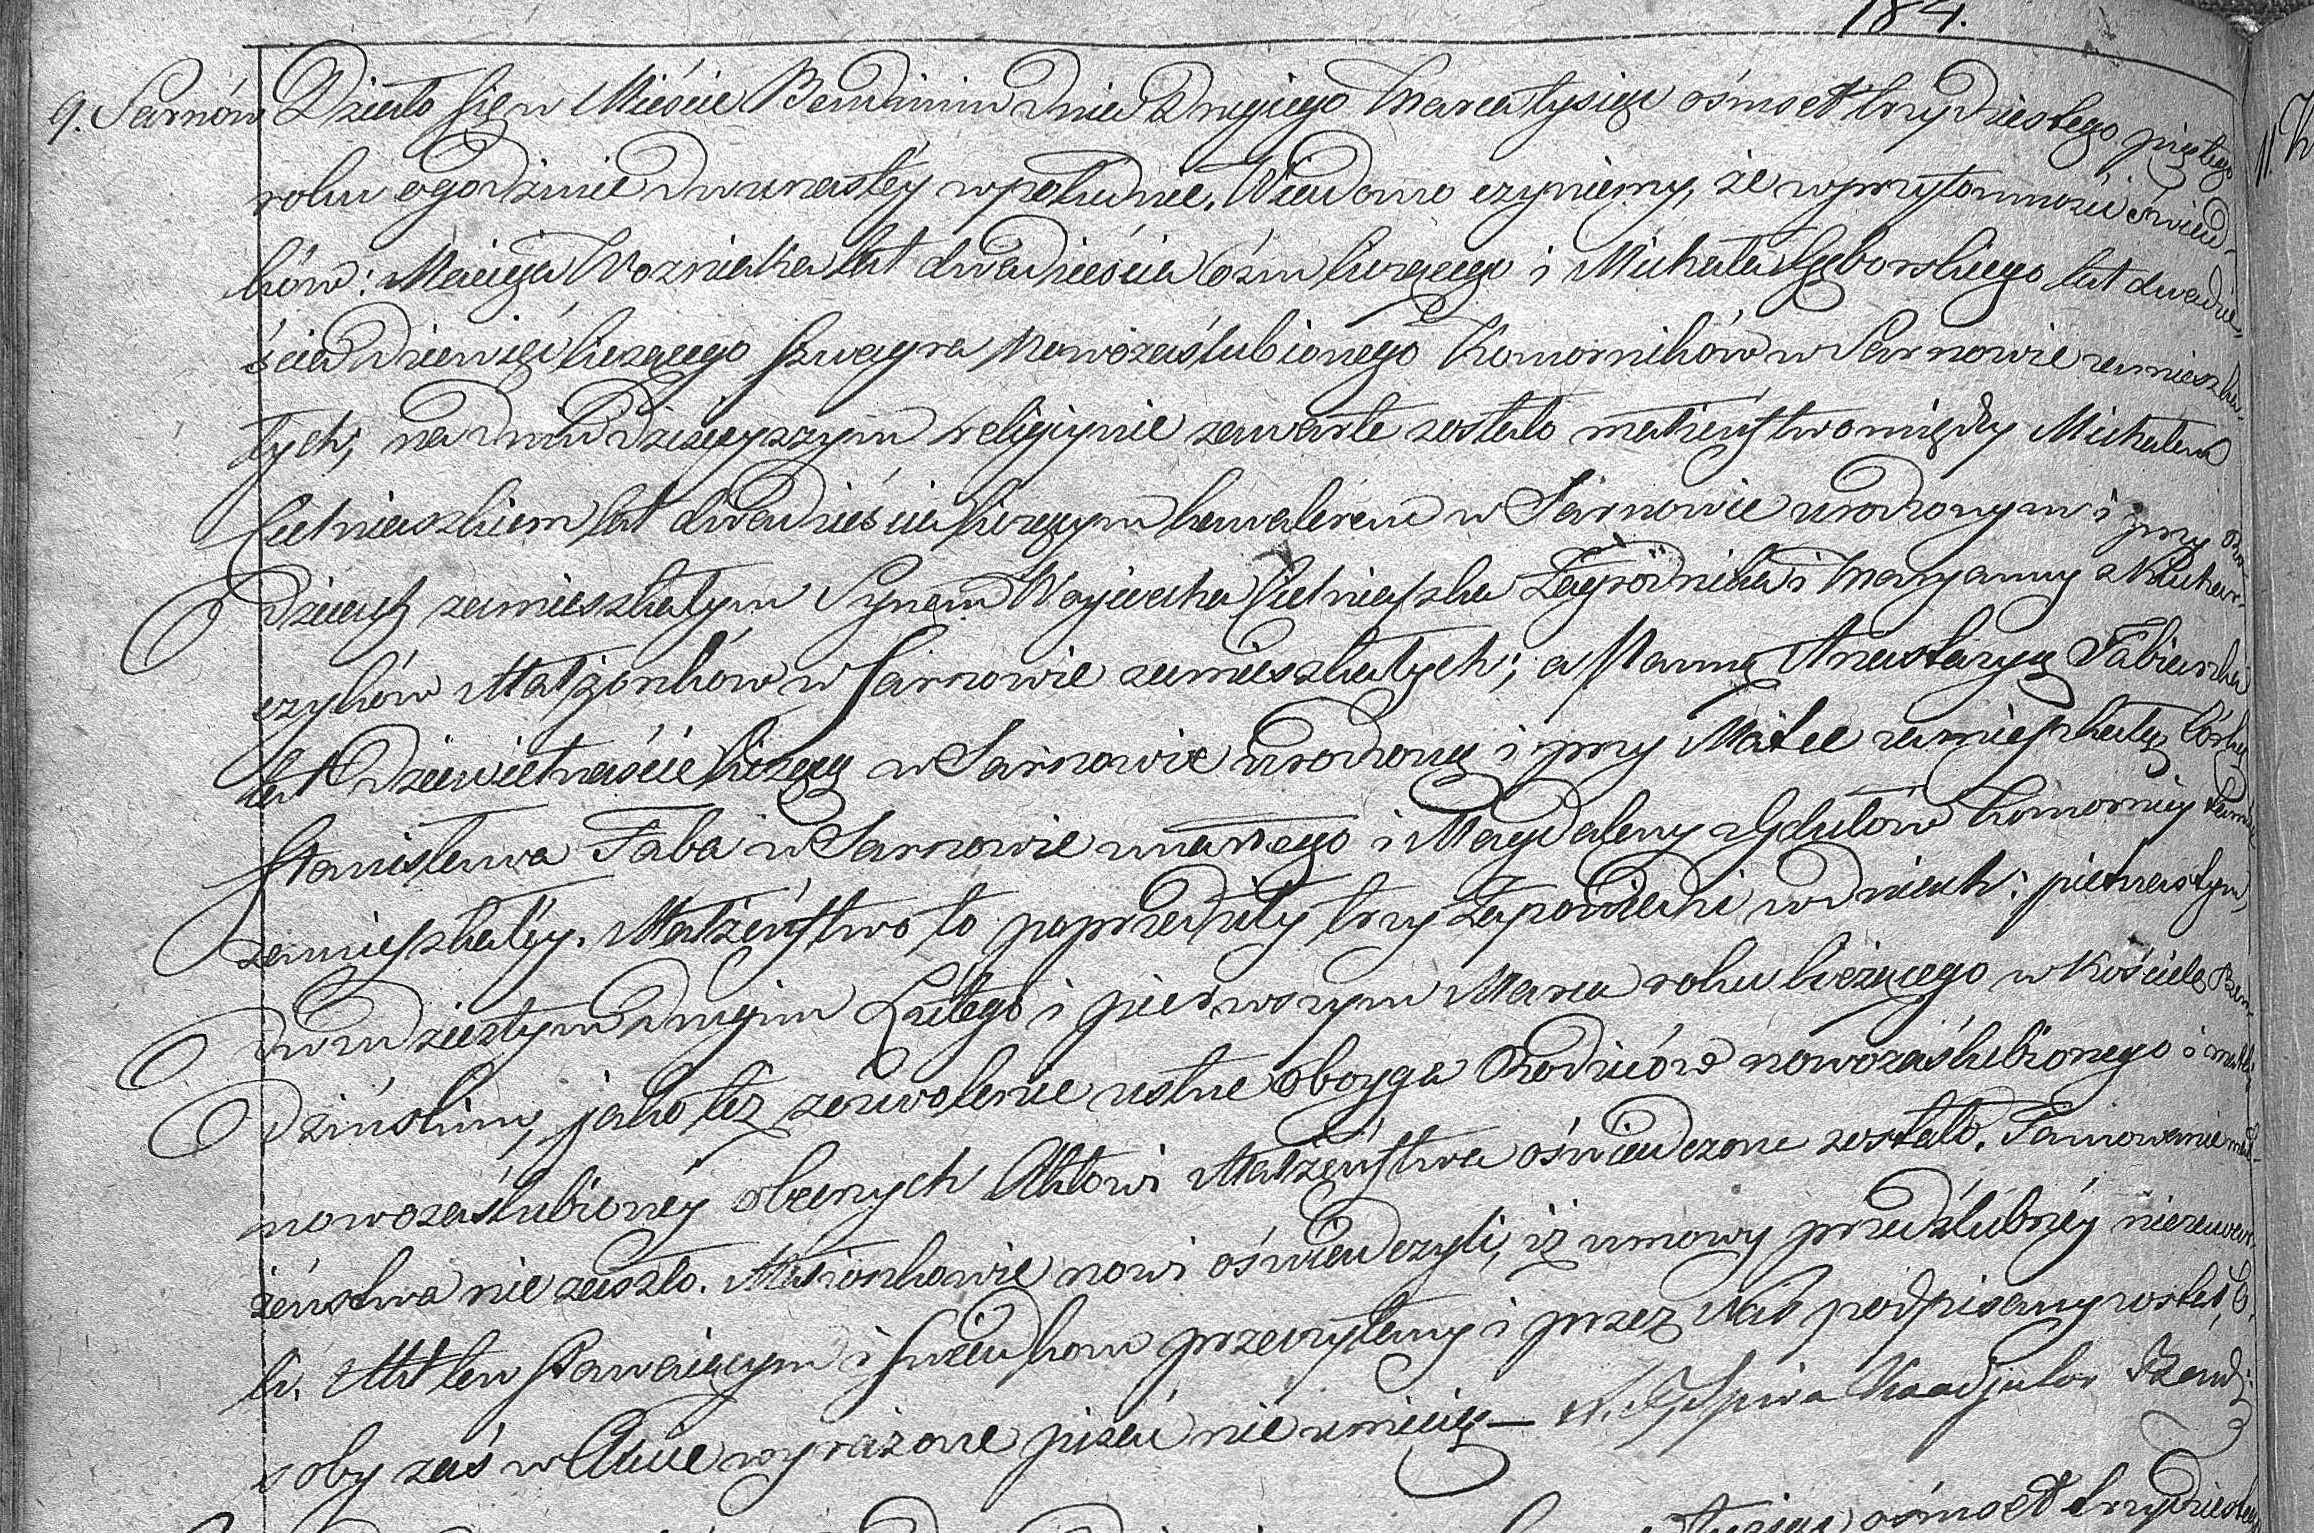 184.
9. Sarnów Działo się w Mieście Bendzinie dnia drugiego Marca tysiąc ośmset trzydziestego piątego
roku o godzinie dwunastéy w południe. Wiadomo czyniemy, że w przytomności świad-
ków: Macieja Wozniaka lat dwadzieścia ośm liczącego i Michała lat dwadzie-
ścia dziewięć liczącego szwagra Nowozaślubionego Komorników w Sarnowie zamieszka-
łych, na dniu dzisieyszym religiynie zawarte zostało małżeństwo między Michałem
lat dwadzieścia liczącym kawalerem w Sarnowie urodzonym i przy Ro-
dzicach zamieszkałym Synem Woyciecha Zagrodnika i Maryanny z Kuchar-
czyków Małżonków w Sarnowie zamieszkałych; a Panną Anastazyą Fabianka
lat dziewietnaście liczącą w Sarnowie urodzoną i przy Matce zamieszkałą, Córką
Stanisława Faba w Sarnowie zmarłego i Magdaleny z Gdułów Komornicy tamże
zamieszkałéy. Małżeństwo to poprzedziły trzy Zapowiedzi w dniach: pietnastym,
dwudziestym drugim Lutego i pierwszym Marca roku bieżącego w Kościele Ben-
dzińskim, jako też zezwolenie ustne oboyga Rodziców nowozaślubionego i matki
nowozaślubionéy obecnych Aktowi Małżeństwa oświadczone zostało. Tamowanie mał-
żeństwa nie zaszło. Małżonkowie nowi oświadczyli, iż umowy przedślubnéy niezawar-
li. Akt ten stawaiącym i świadkom przeczytany i przez Nas podpisany został, O-
soby zaś w Akcie wyrażone pisać nie umieią —
ośmset trzydziestego